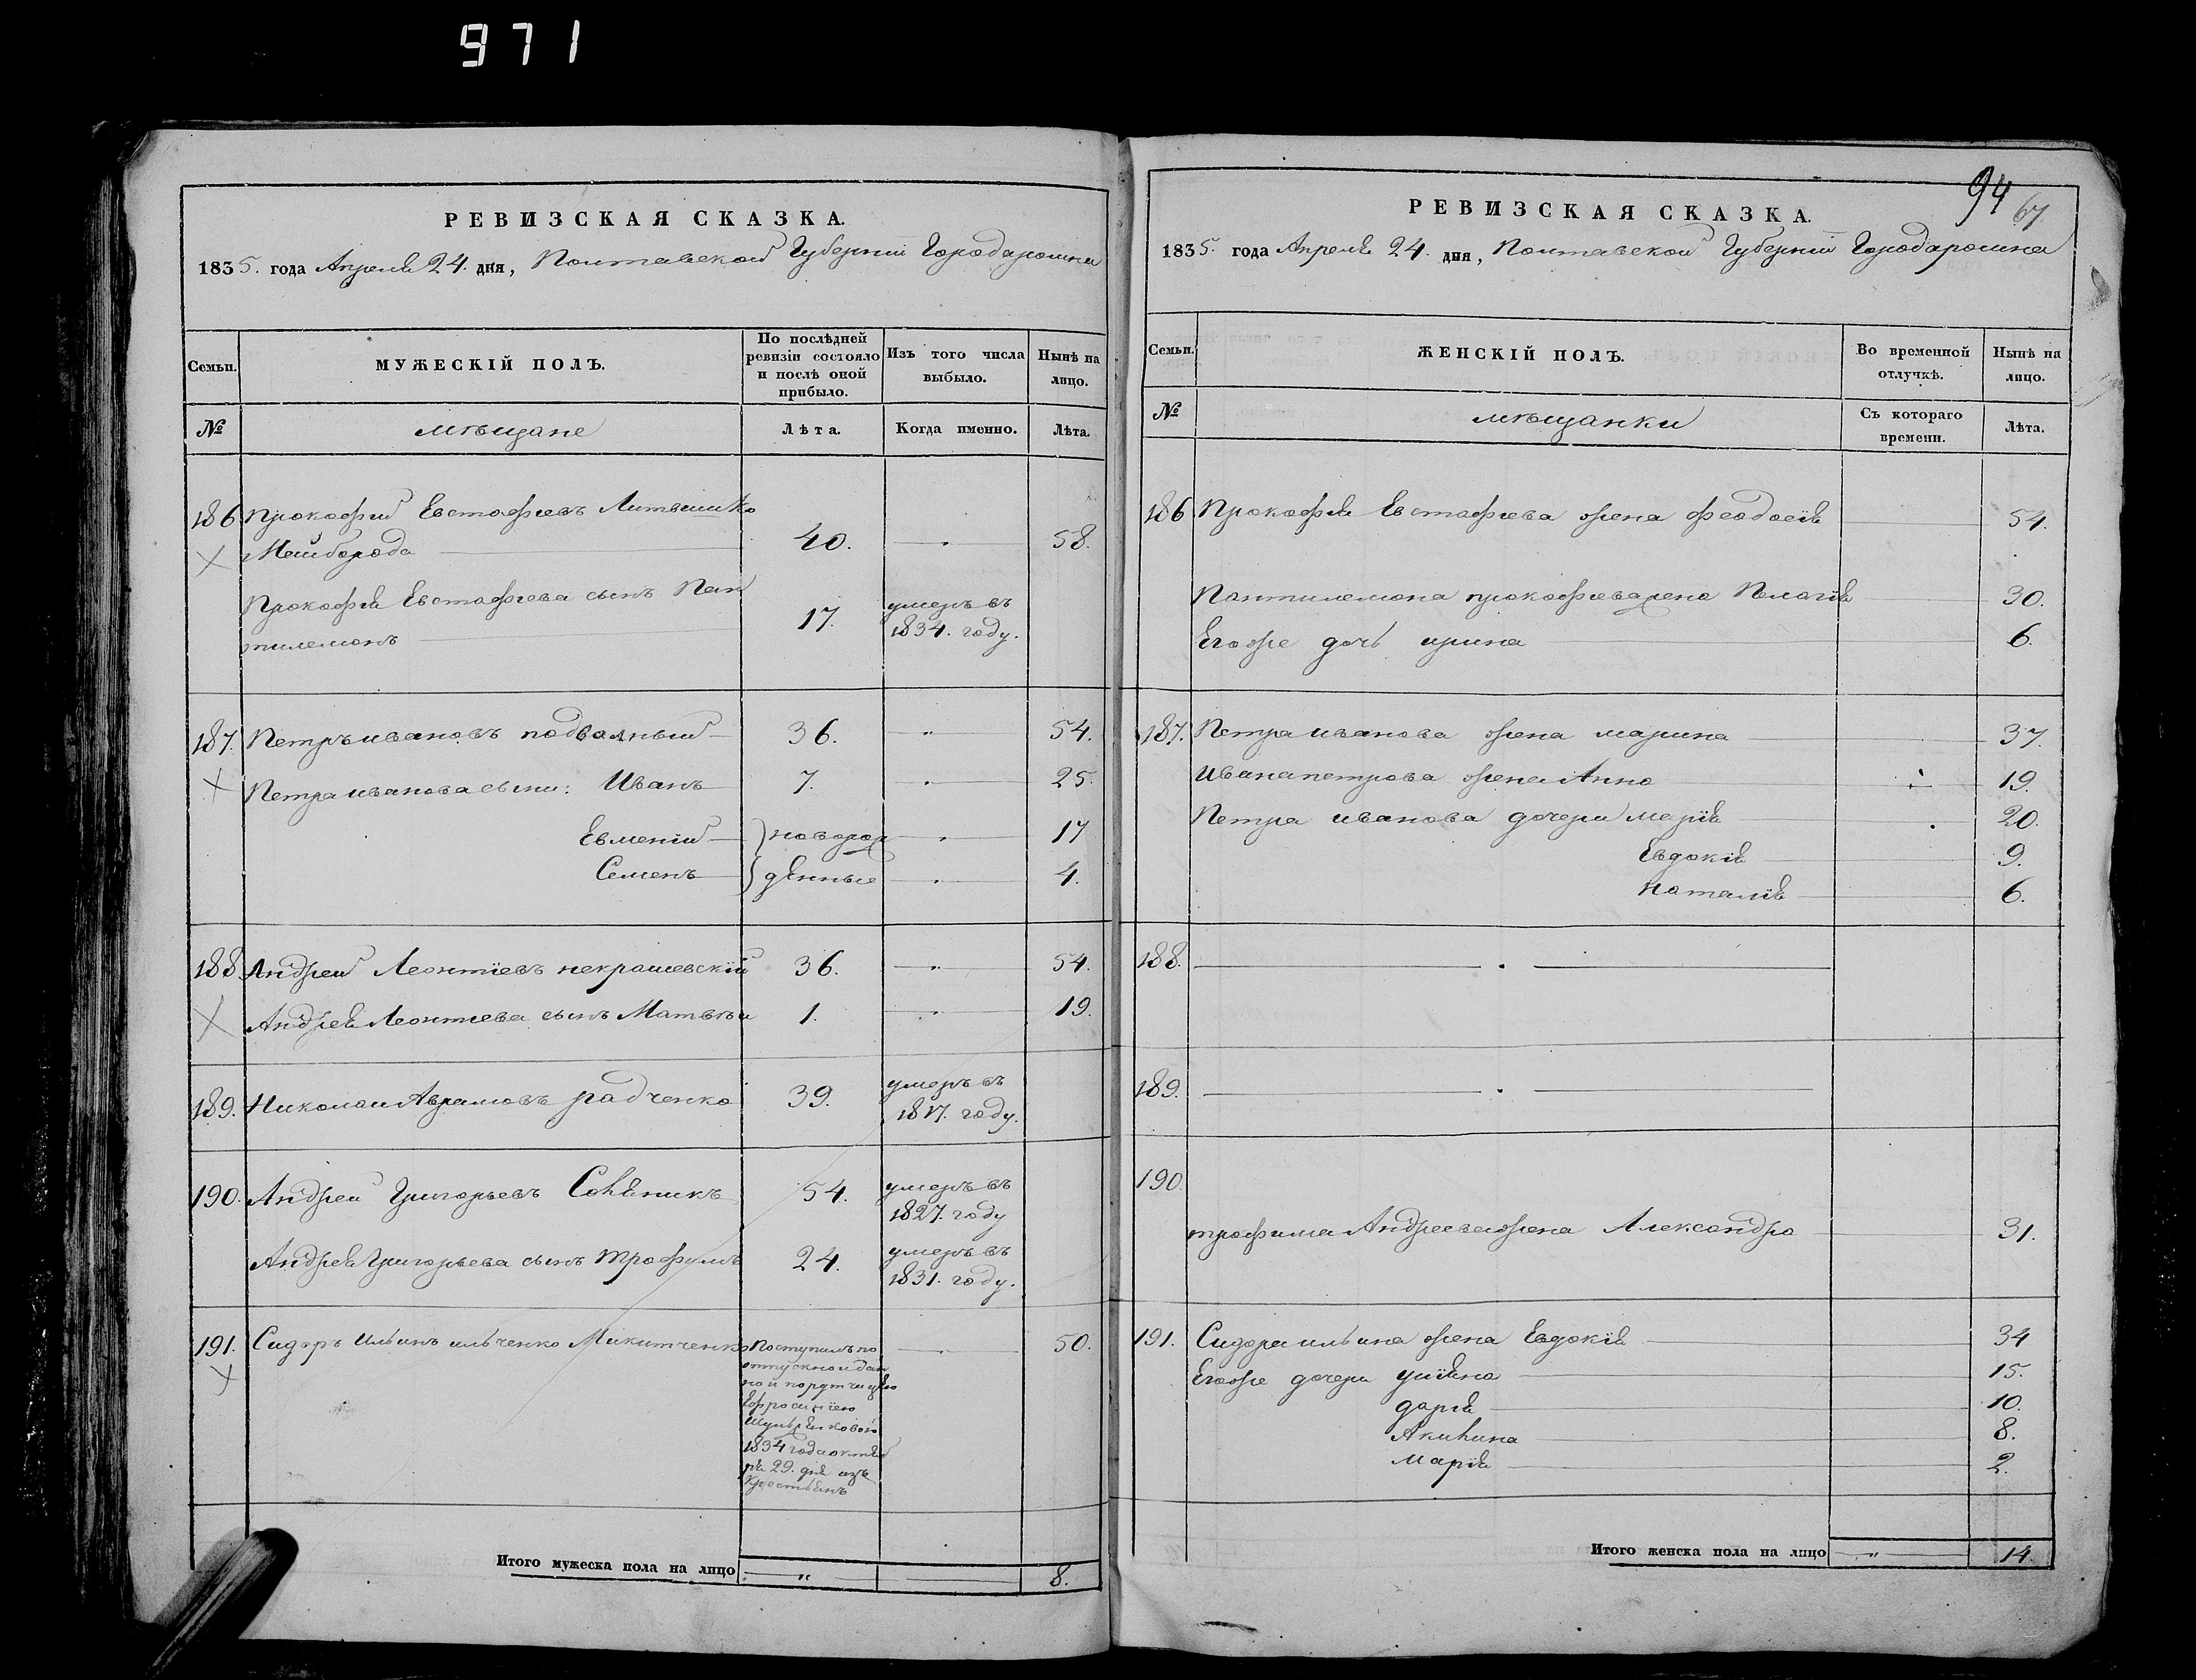 971
РЕВИЗСКАЯ СКАЗКА.
1835. года Апреля 24. дня, Полтавской Губернии Города ромна
Семьи.
МУЖЕСКІЙ ПОЛЪ.
По послѣдней ревизіи состояло и послѣ оной прибыло.
Изъ того числа выбыло.
Нынѣ на лицо.
№
мѣщане
Лѣта.
Когда именно.
Лѣта.
186 Прокофий Евстафиевъ Литвишко
Майборода 40. 58.
Прокофия Евстафиева сынъ Пан
тилемонъ 17. умеръ въ
1834. году.
187. Петръ ивановъ подвалный 36. 54.
Петра иванова сыни: Иванъ 7. 25.
Евмений новорож 17
Семенъ денные 4.
188. Андрей Леонтіевъ некрашевскій 36. 54.
Андрея Леонтиева сынъ Матвѣй 1. 19.
189. Николай Аврамовъ радченко 39. умеръ въ
1817. году.
190. Андрей Григорьевъ 54. умеръ въ
1827. году
Андрея Григорьева сынъ трофимъ 24. умеръ въ
1831. году.
191. Сидоръ Ильинъ ильченко Микитченко 50.
Поступилъ по
отпускной дан
ной порутчицею
Ефросиніею
1834 года октяб
ря 29. дня изъ
Крестьянъ
Итого мужеска пола на лицо 8.
94
67
РЕВИЗСКАЯ СКАЗКА.
1835. года Апреля 24. дня, Полтавской Губерній Города ромна
Семьи.
ЖЕНСКІЙ ПОЛЪ.
Во временной отлучкѣ.
Нынѣ на лицо.
№
мѣщанки
Съ котораго времени.
Лѣта.
186 Прокофия Евстафиева жена феодосія 54.
Пантилемона прокофиева жена Пелагія 30.
Егоже дочь ирина 6.
187. Петра иванова жена марина 37.
Ивана петрова жена Анна 19.
Петра иванова дочери марія 20.
Евдокія 9.
Наталія 6.
188.
189.
190.
трофима Андреева жена Александра 31.
191. Сидора ильина жена Евдокія 34
Егоже дочери уліяна 15.
дарія 10.
Акилина 8.
Марія 2.
Итого женска пола на лицо 14.